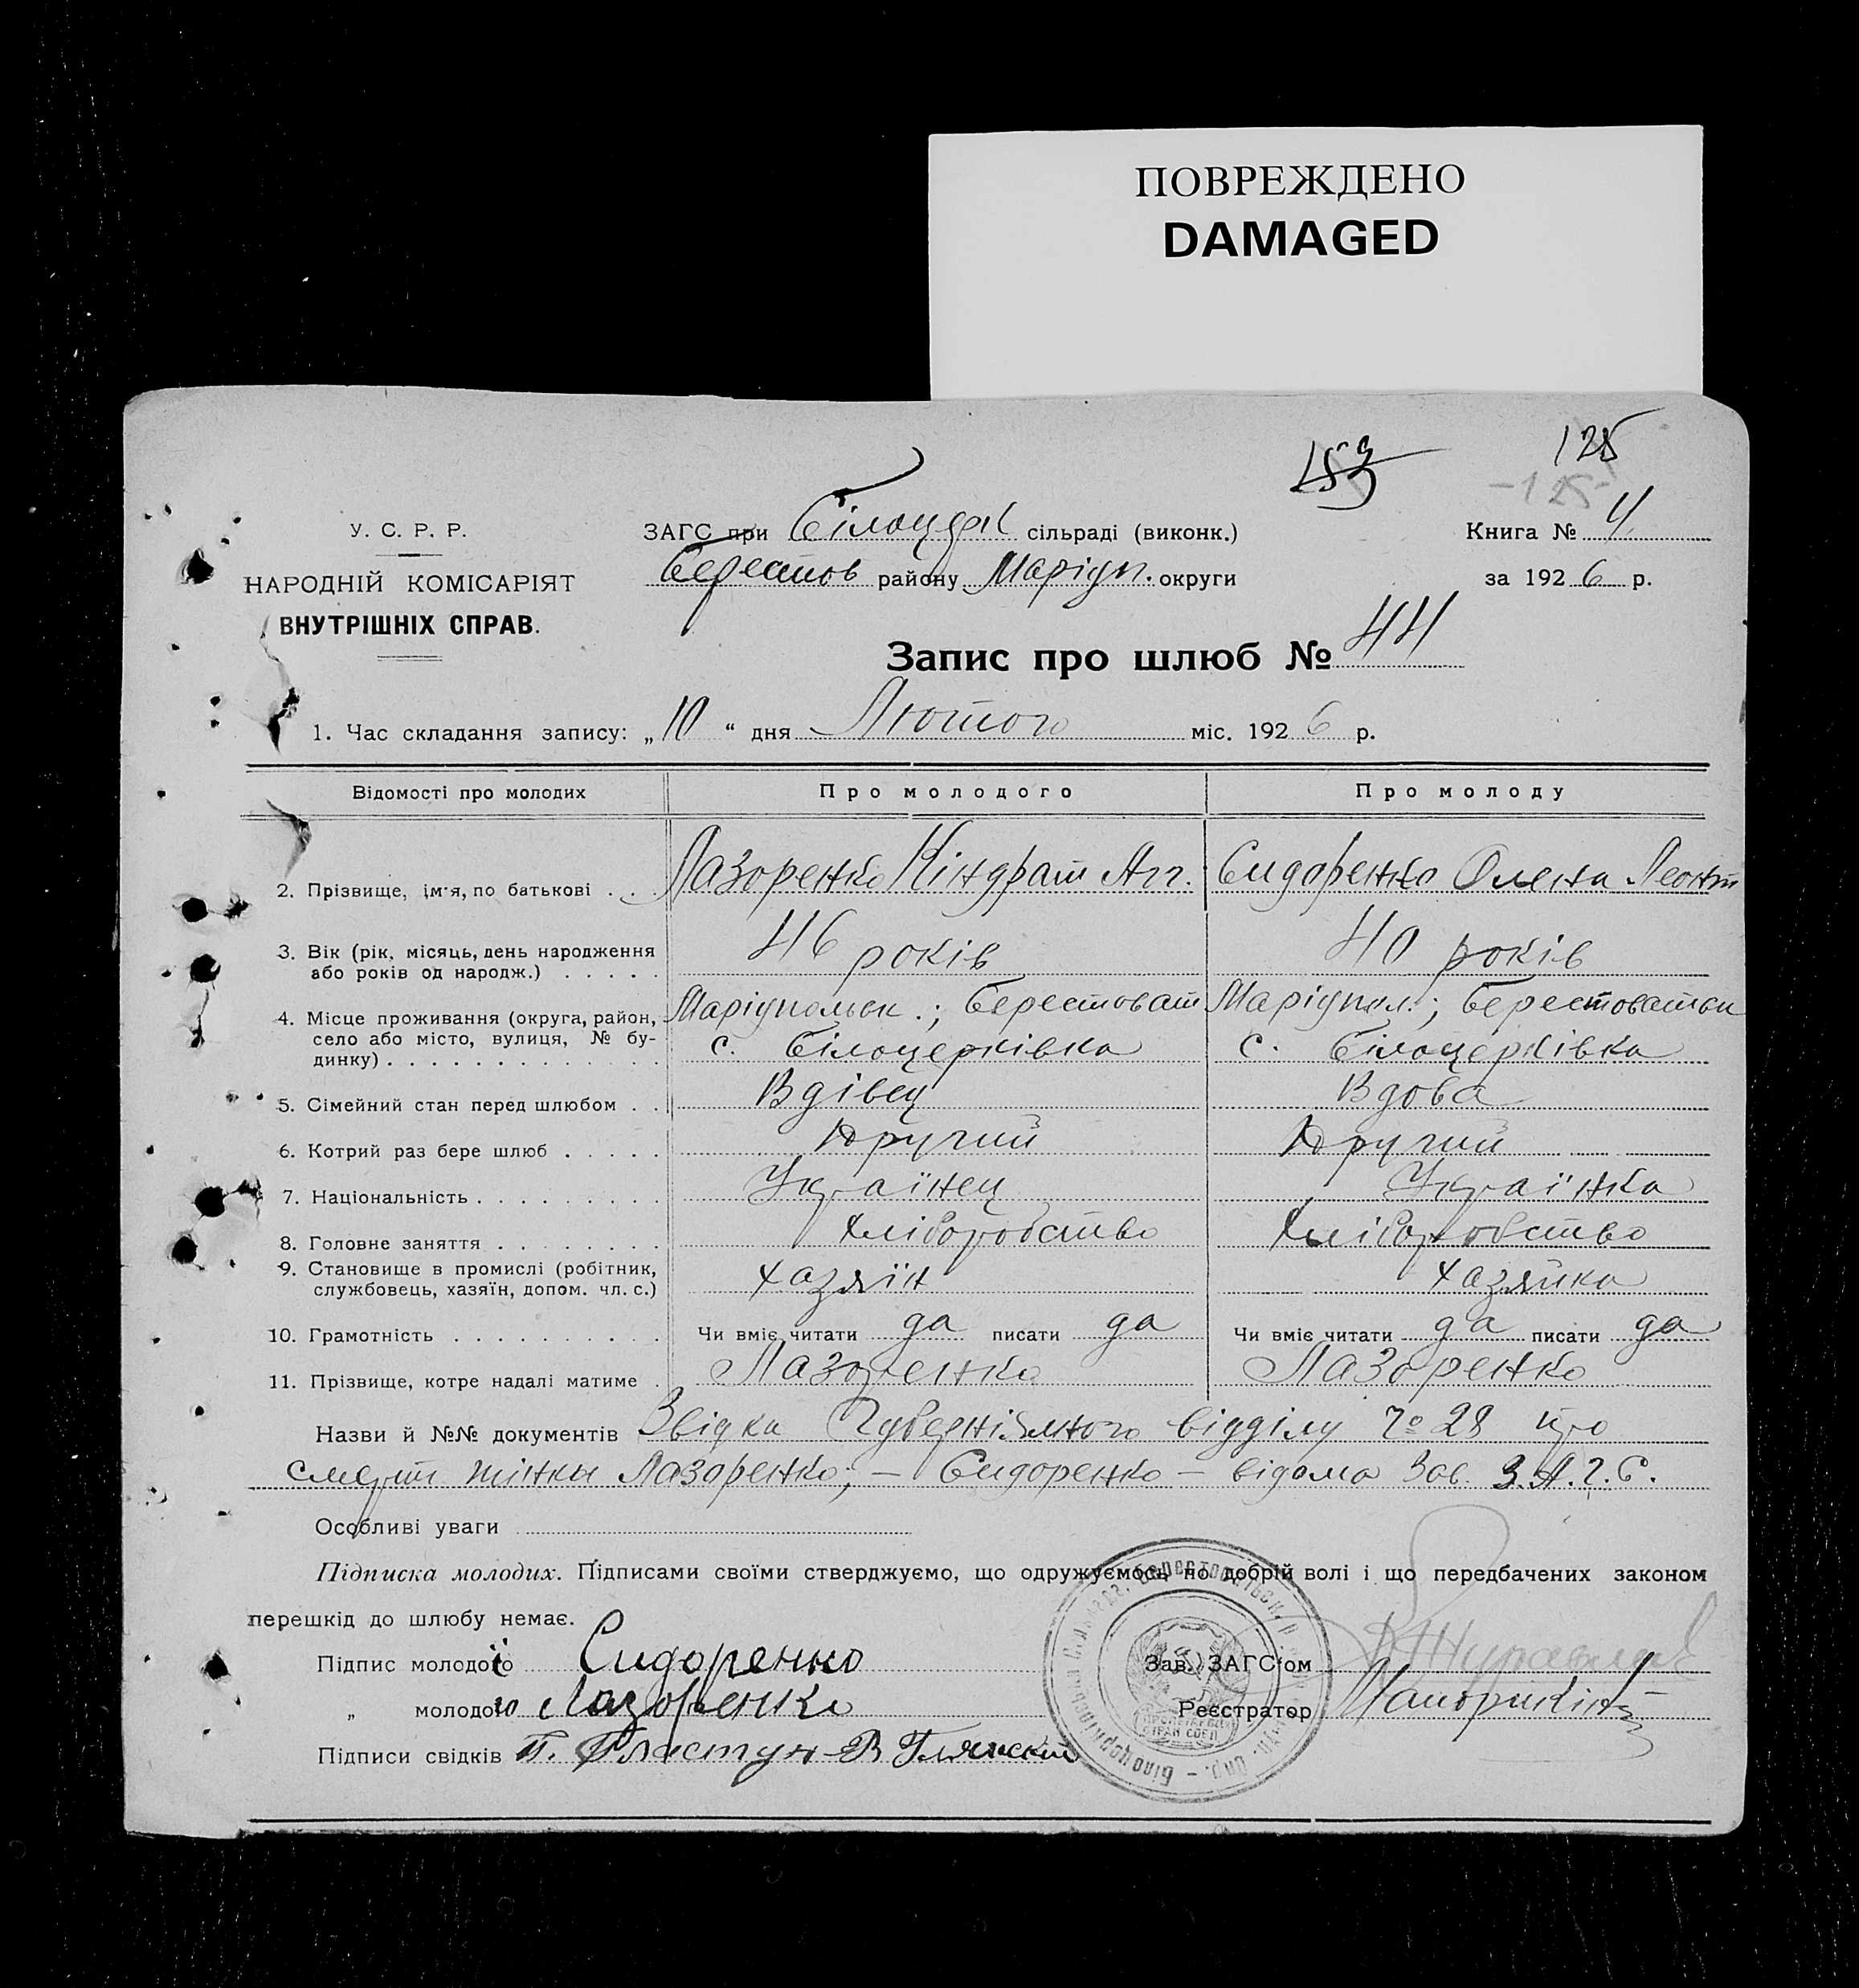 ПОВРЕЖДЕНО
DAMAGED
153 125
-125-
У. С. Р. Р.
НАРОДНІЙ КОМІСАРІЯТ
ВНУТРІШНІХ СПРАВ.
ЗАГС при Білоцерк сільраді (виконк.)
Берестов району Маріуп. округи
Книга № 4
за 1926 р.
Запис про шлюб № 44
1. Час складання запису: „10“ дня Лютого міс. 1926 р.
Відомості про молодих Про молодого Про молоду
2. Прізвище, ім'я, по батькові . . Лазоренко Кіндрат Сидоренко Олена Леонт
3. Вік (рік, місяць, день народження 46 років 40 років
або років од народж.) . . . . .
4. Місце проживання (округа, район, Маріупольск.; Берестоват Маріупол.; Берестоватськ
село або місто, вулиця, № бу- с. Білоцерківка с. Білоцерківка
динку) . . . . . . . . . . . . .
5. Сімейний стан перед шлюбом . . Вдівец Вдова
6. Котрий раз бере шлюб . . . . . Другий Другий
7. Національність . . . . . . . . . Українец Українка
8. Головне заняття . . . . . . . . Хліборобство Хліборобство
9. Становище в промислі (робітник, Хазяїн Хазяйка
службовець, хазяїн, допом. чл. с.)
10. Грамотність . . . . . . . . . . Чи вміє читати да писати да Чи вміє читати да писати да
11. Прізвище, котре надалі матиме . Лазоренко Лазоренко
Назви й №№ документів Звідка відділу № 28 про
смерть жінки Лазоренко; — Сидоренко — відома Зав. З.А.Г.С.
Особливі уваги
Підписка молодих. Підписами своїми стверджуємо, що одружуємось по добрій волі і що передбачених законом
перешкід до шлюбу немає.
Підпис молодої Сидоренко Зав. ЗАГС'ом
„ молодого Лазоренко Реєстратор
Підписи свідків П. Пластун В